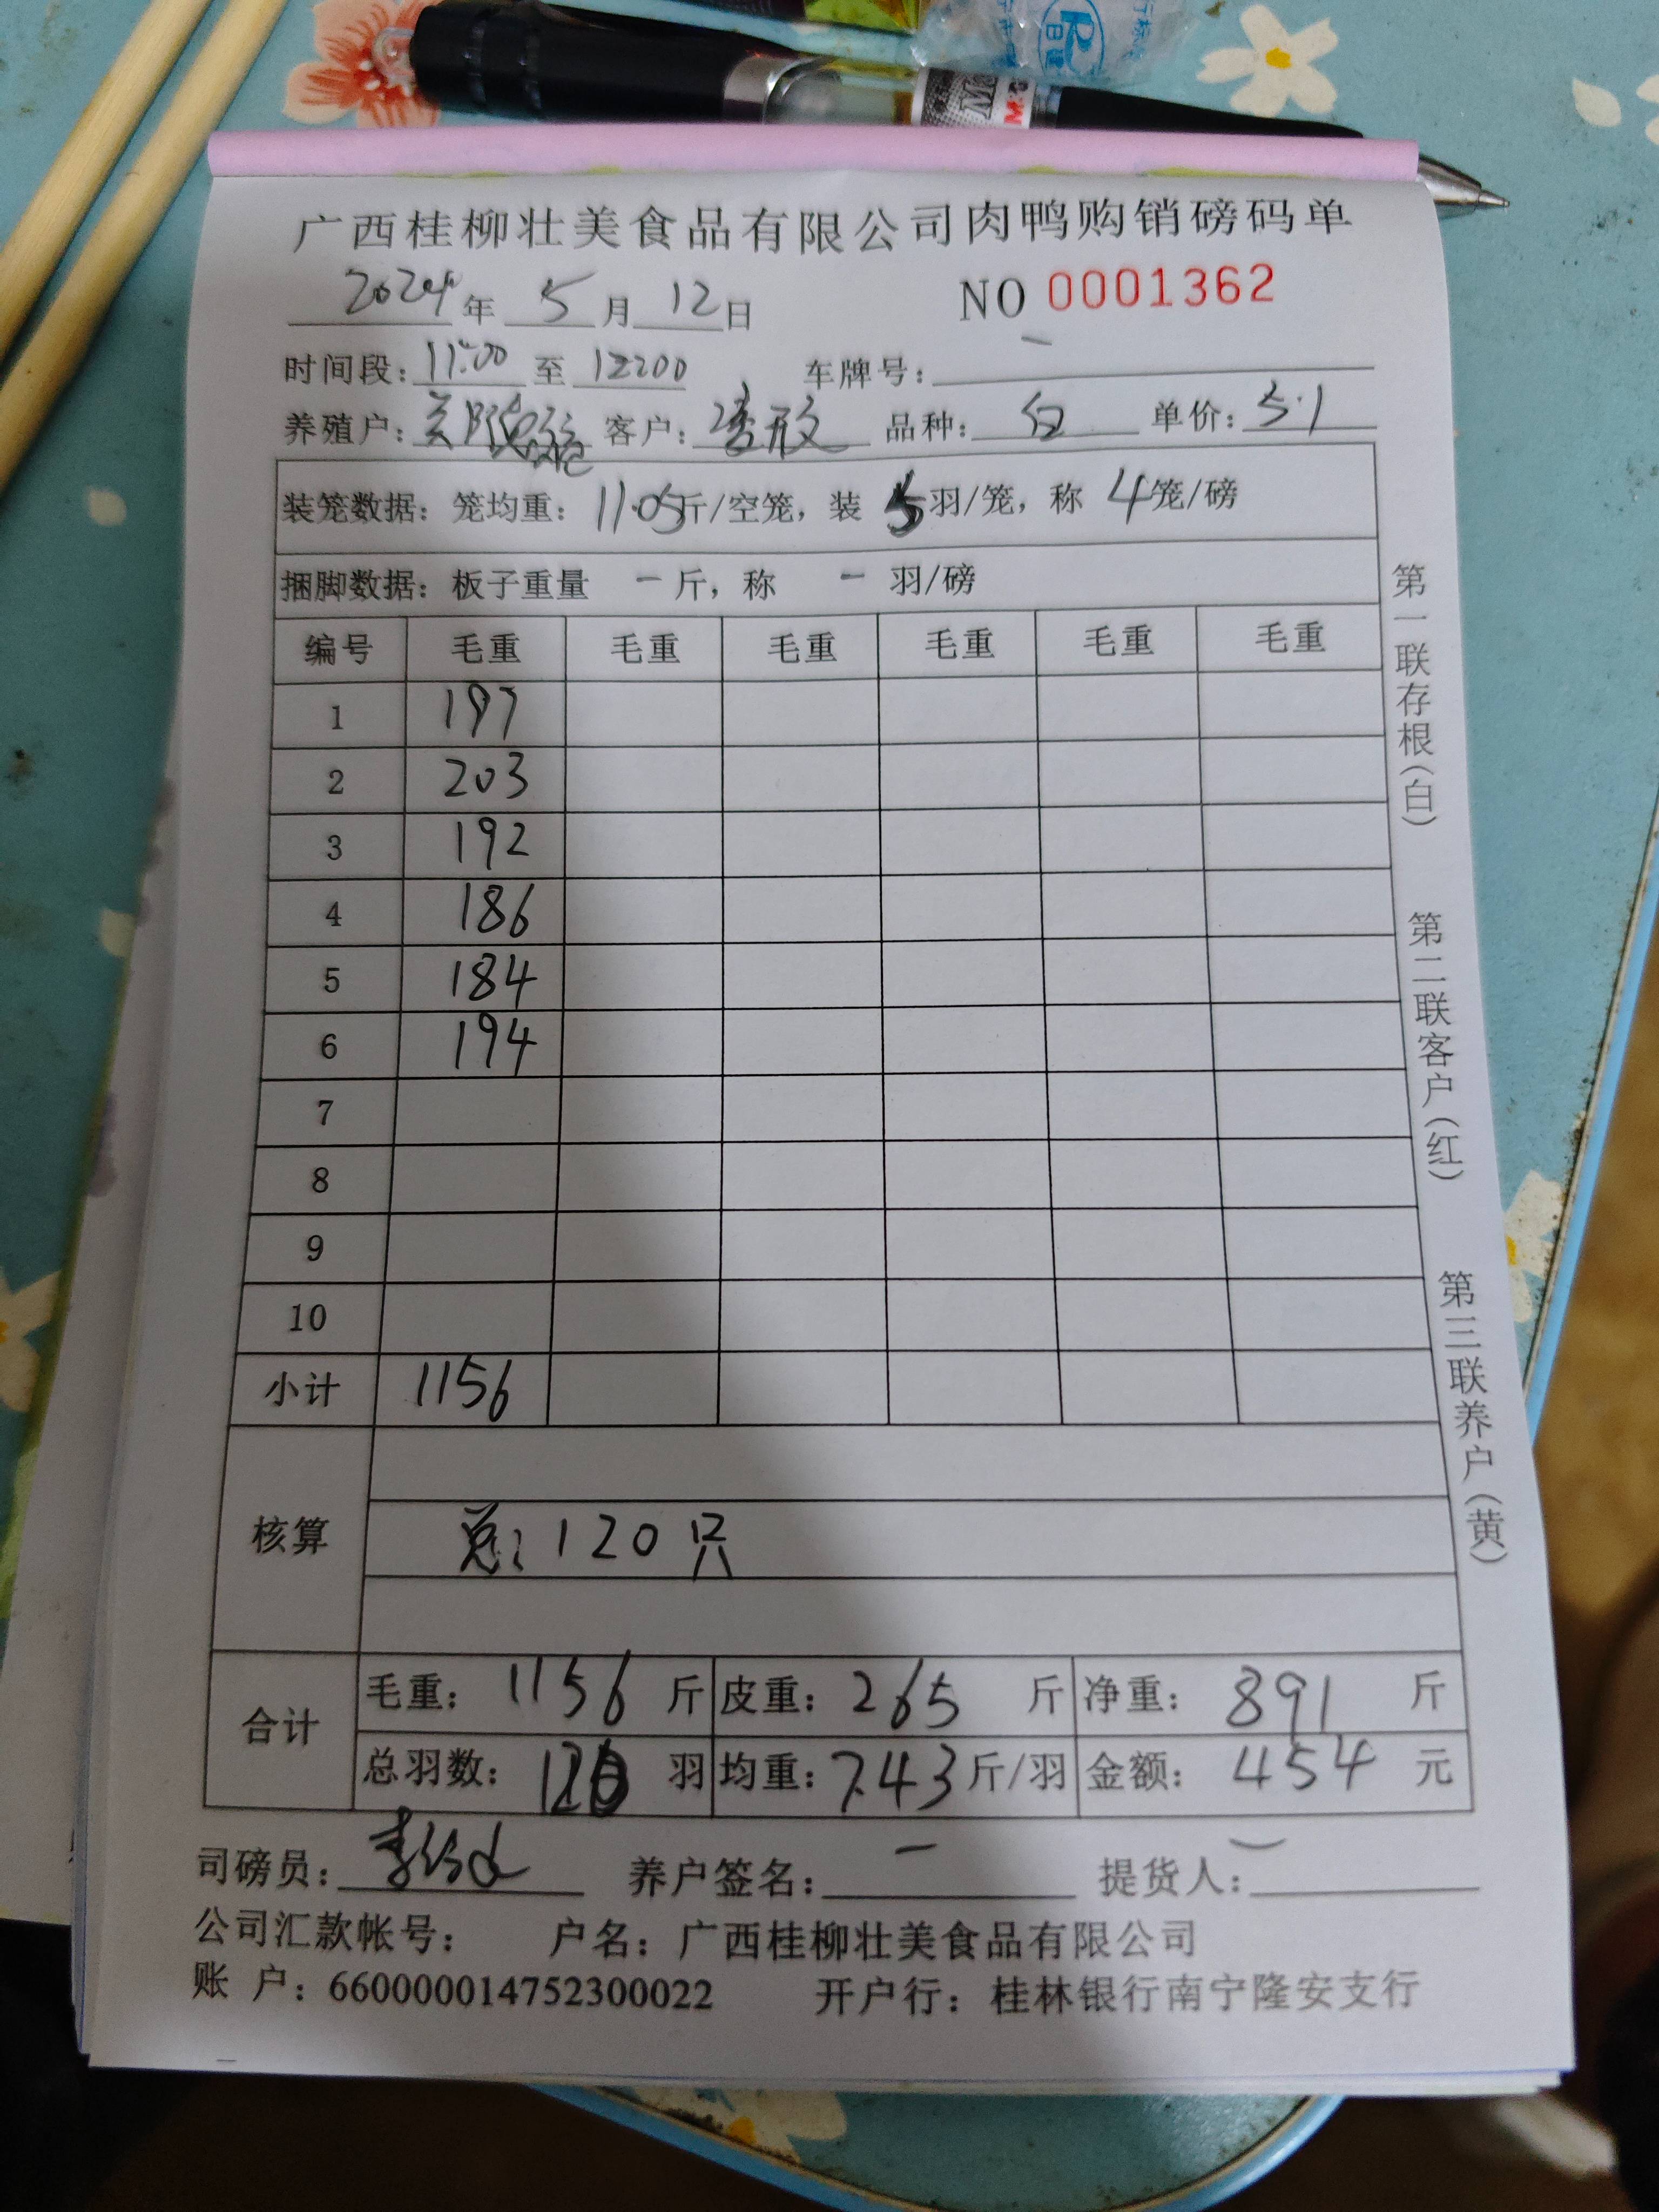 广西桂柳壮美食品有限公司肉鸭购销磅码单
2024年 5月 12日 NO 0001362
时间段: 11:00 至 12:00 车牌号: —
养殖户: 客户: 品种: 白 单价: 5.1
装笼数据: 笼均重: 11.05斤/空笼, 装 5羽/笼, 称 4笼/磅
捆脚数据: 板子重量 —斤, 称 — 羽/磅
编号 毛重 毛重 毛重 毛重 毛重 毛重
1 197
2 203
3 192
4 186
5 184
6 194
7
8
9
10
小计 1156
核算
总: 120只
合计
毛重: 1156 斤 皮重: 265 斤 净重: 891 斤
总羽数: 120 羽 均重: 7.43斤/羽 金额: 454 元
司磅员: 养户签名: — 提货人: —
公司汇款帐号: 户名: 广西桂柳壮美食品有限公司
账 户: 660000014752300022 开户行: 桂林银行南宁隆安支行
第一联存根(白)
第二联客户(红)
第三联养户(黄)